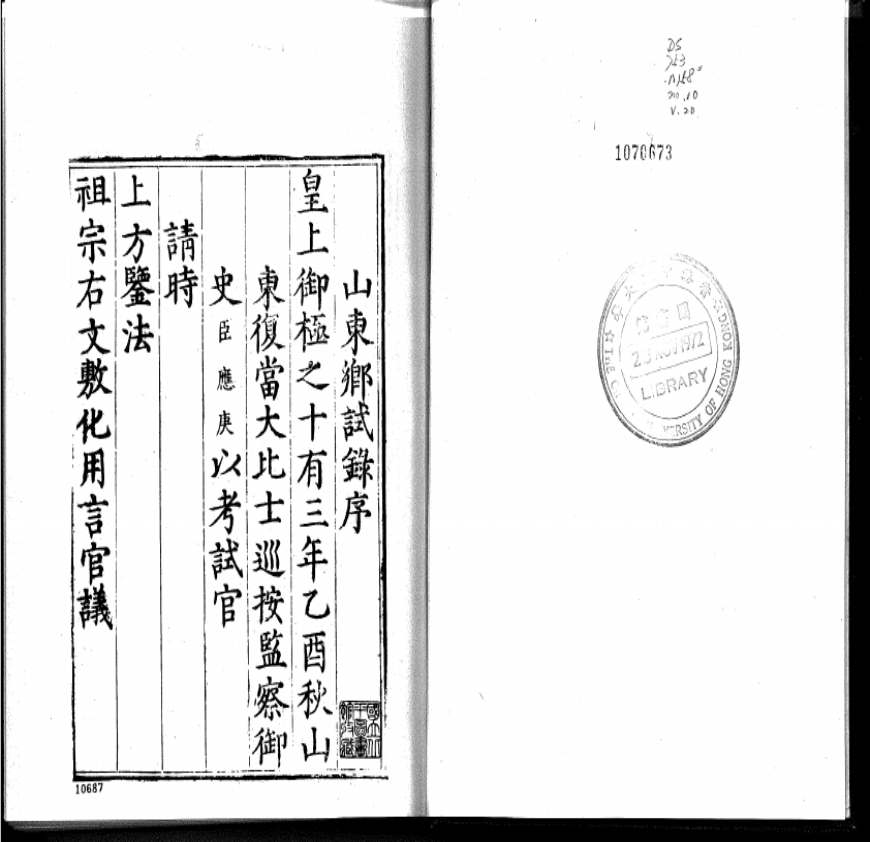 山東鄉試錄序
皇上御極之十有三年乙酉秋山
東復當大比士巡按監察御
史臣應庚以考試官
請時
上方鑒法
祖宗右文敷化用言官議
10687
DS
753
no.10
v.20
1070673
LIBRARY
UNIVERSITY OF HONG KONG